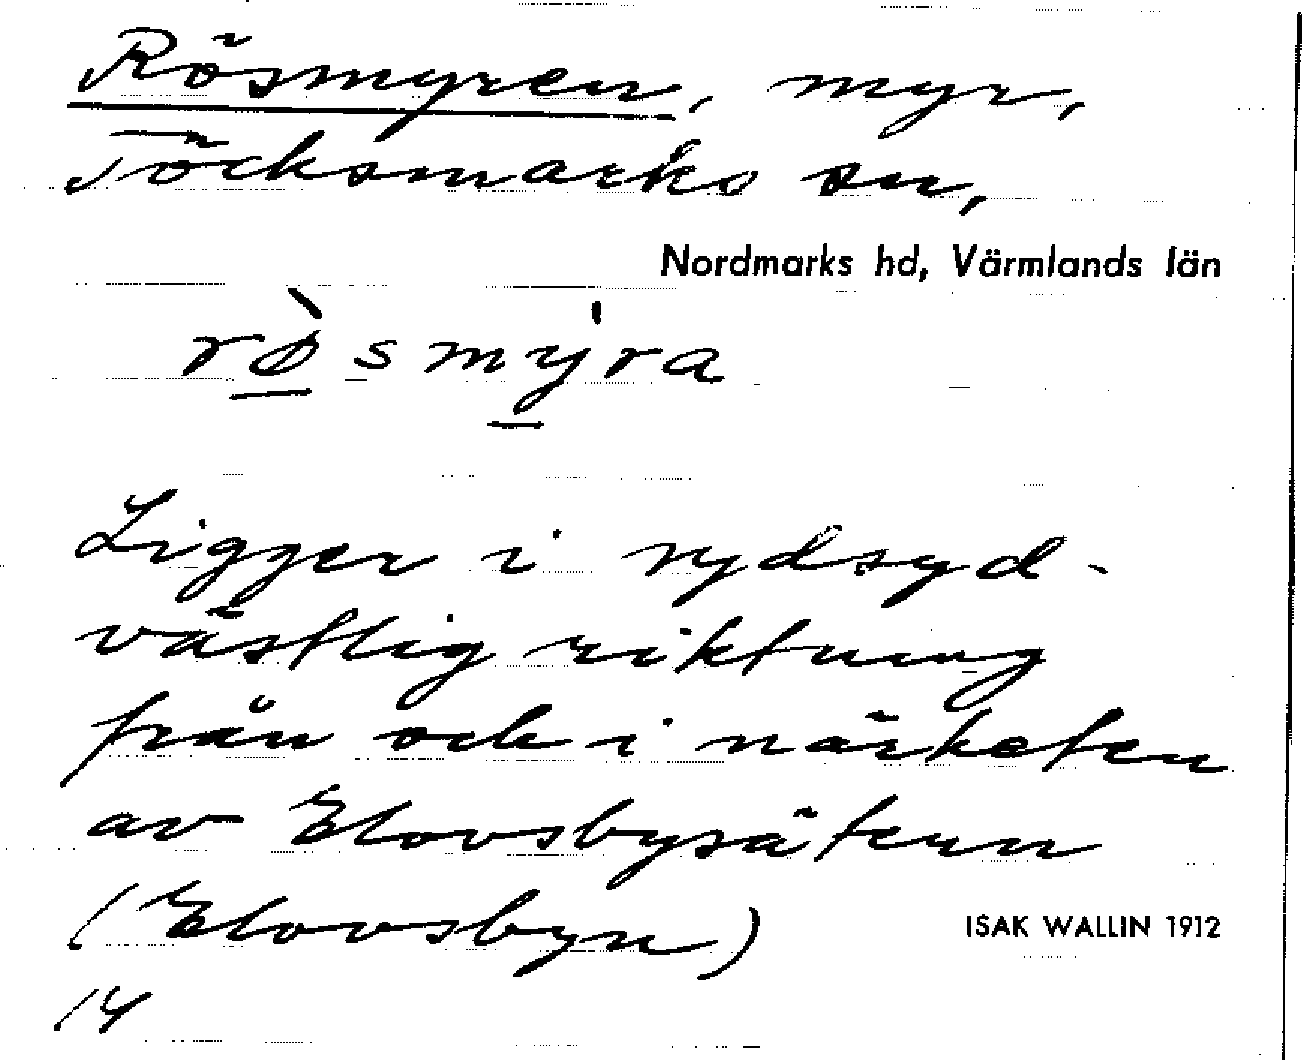 Rösmyren, myr,
Töcksmarks sn,
Nordmarks hd, Värmlands län
rø̀smýra
Ligger i sydsyd-
västlig riktning
från och i närheten
av Elovsbysätern
(Elovsbyn)
ISAK WALLIN 1912
14